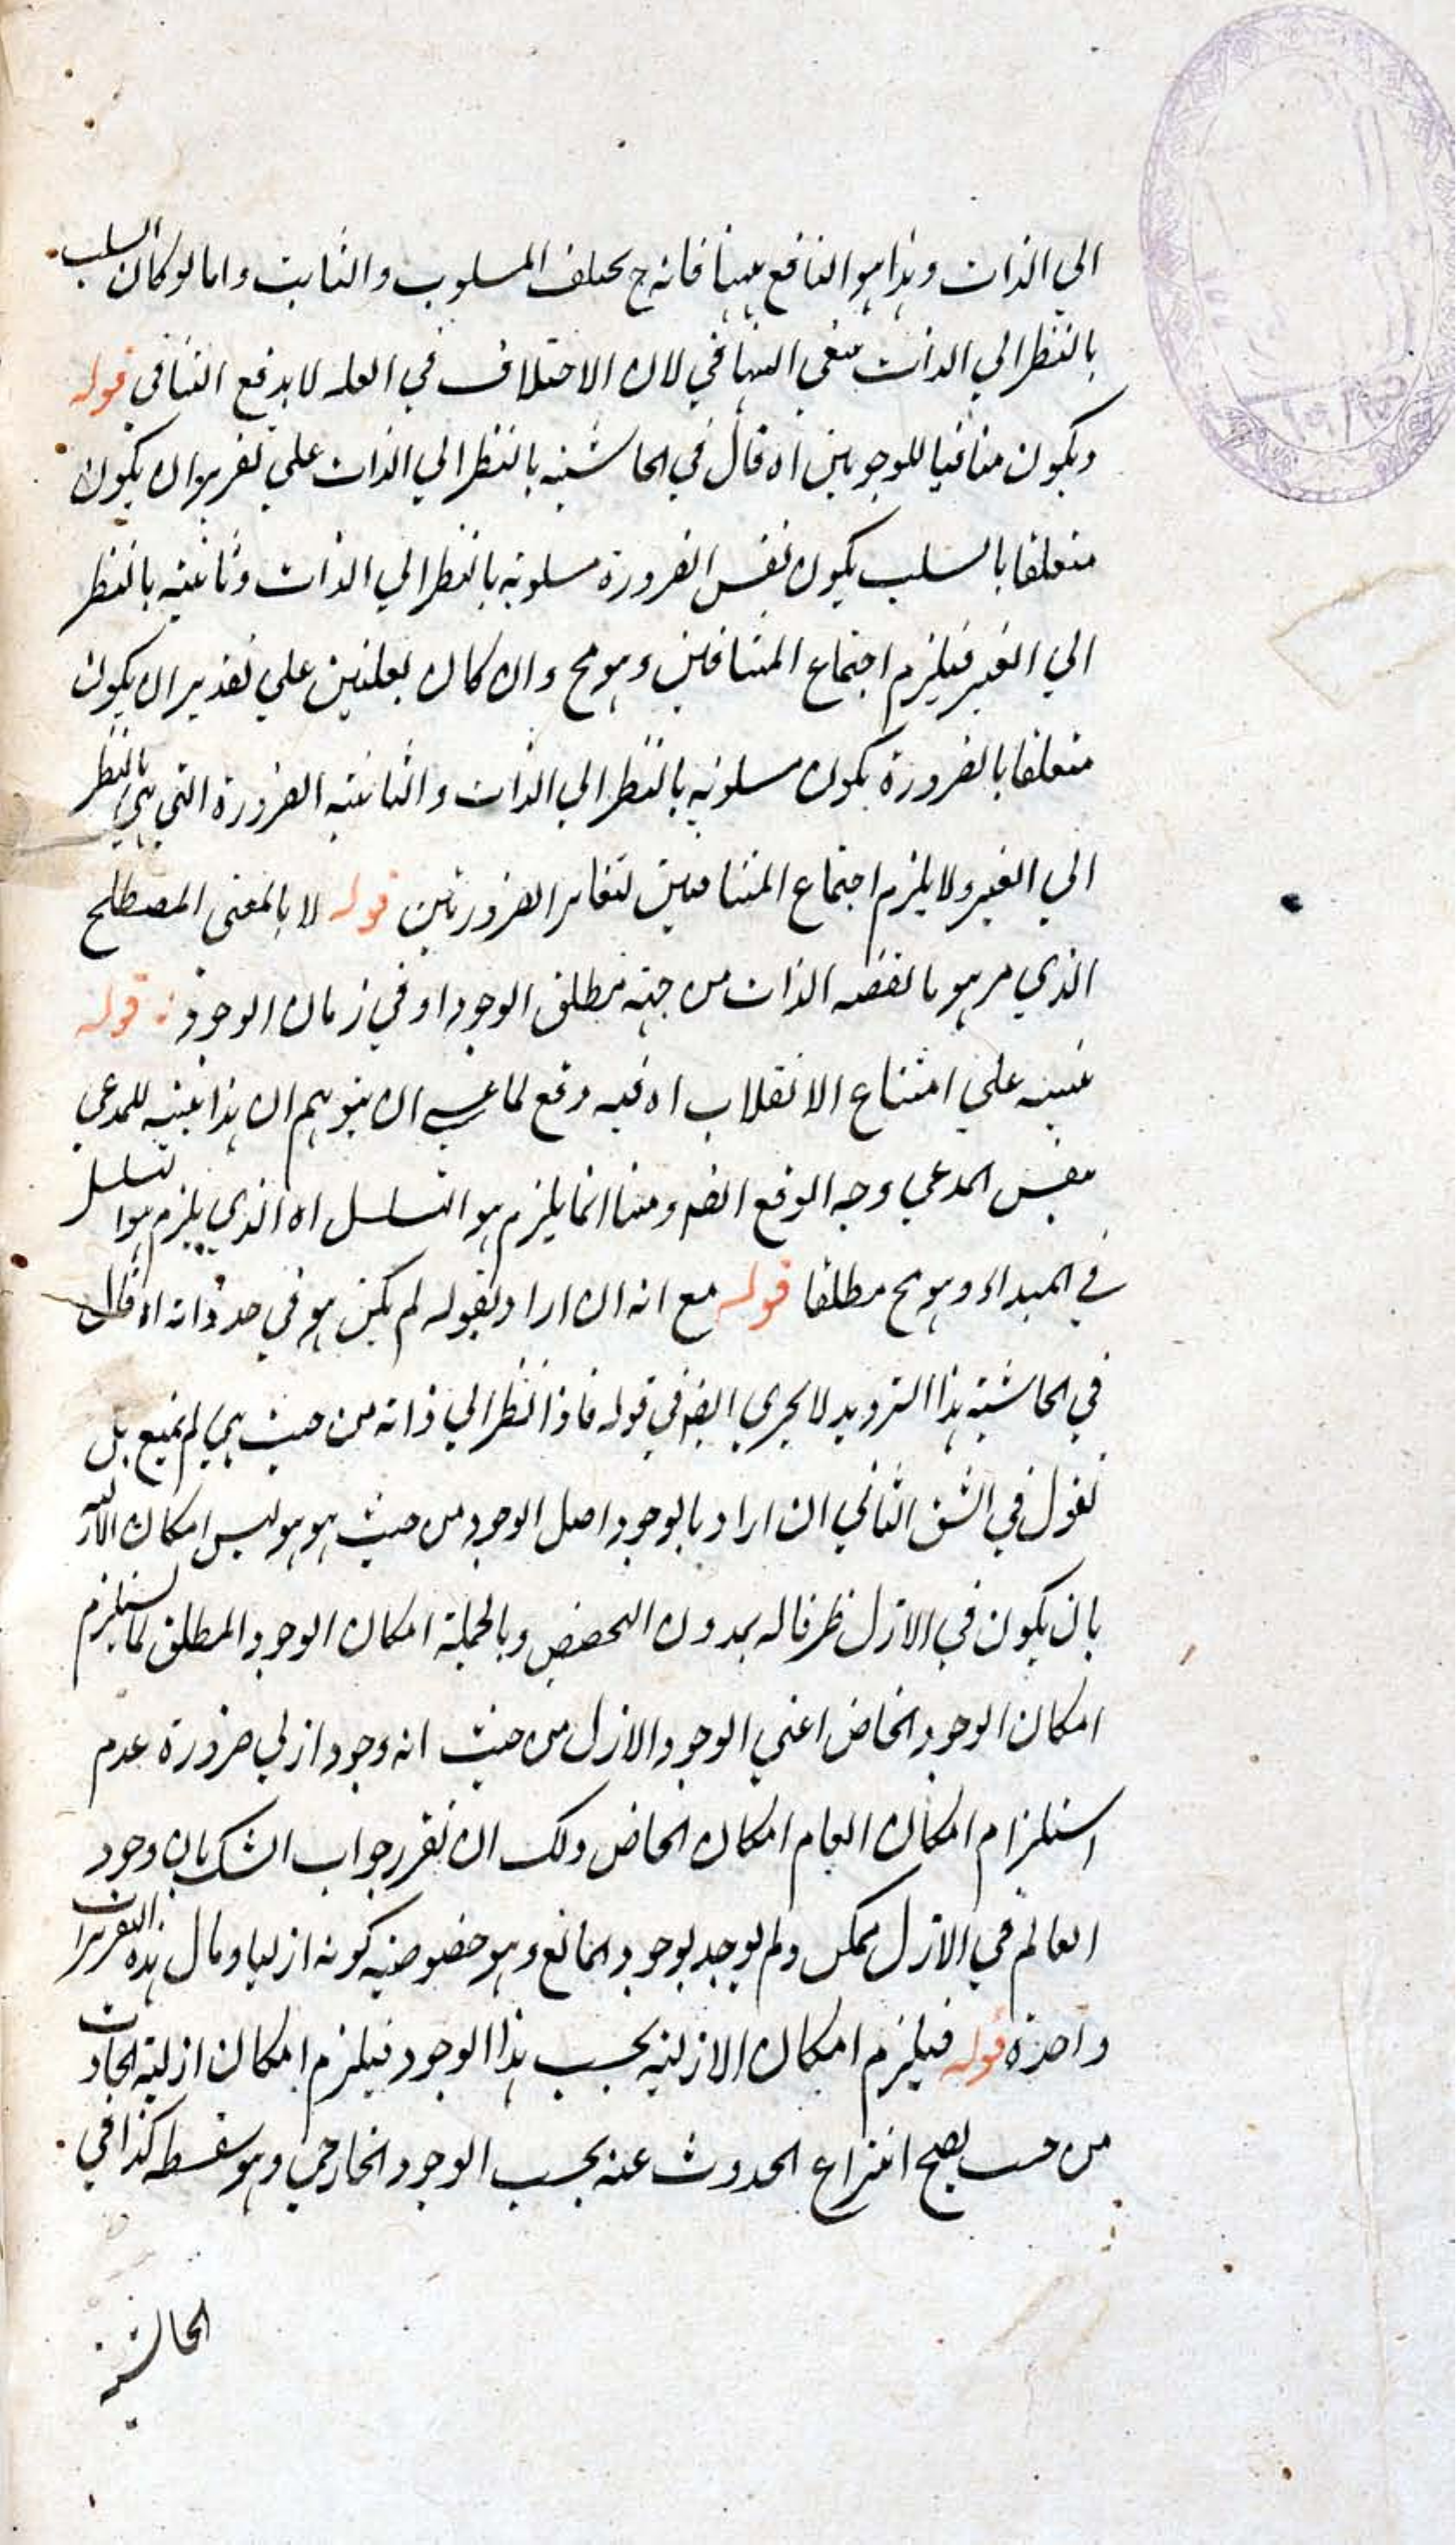 الي الذات وهذا هو النافع ههنا فانه ح يختلف المسلوب والثابت واما لو كان السلب
بالنظر الي الذات فبقي التنافي لان الاختلاف في العلة لا يدفع التنافي قوله
ويكون منافيا للوجوبين اه قال في الحاشية بالنظر الي الذات علي تقرير ان يكون
متعلقا بالسلب يكون نفس الضرورة مسلوبة بالنظر الي الذات وثابتة بالنظر
الي الغير فيلزم اجتماع المتنافيين وهو مح وان كان بعلتين علي تقدير ان يكون
متعلقا بالضرورة يكون مسلوبة بالنظر الي الذات والثابتة الضرورة التي هي بالنظر
الي الغير ولا يلزم اجتماع المتنافيين لتغاير الضرورتين قوله لا بالمعني المصطلح
الذي مر هو ما تقتضيه الذات من جهة مطلق الوجود او في زمان الوجود قوله
تنبيه علي امتناع الانقلاب اه فيه دفع لما عسي ان يتوهم ان هذا تنبيه للمدعي
بنفس المدعي وجه الدفع ايضا انما يلزم هو التسلسل اه الذي يلزم هو التسلسل
في المبداء وهو مح مطلقا قوله مع انه ان اراد بقوله لم يكن هو في حد ذاته اه قال
في الحاشية هذا الترديد لا يجري ايضا في قوله فاذا نظر الي ذاته من حيث هي لم يمنع بل
نقول في الشق الثاني ان اراد بالوجود اصل الوجود من حيث هو هو ليس امكان الازلية
بان يكون في الازل ظرفا له بدون التخصص وبالجملة امكان الوجود المطلق لا يستلزم
امكان الوجود الخاص اعني الوجود الازل من حيث انه وجود ازلي ضرورة عدم
استلزام امكان العام امكان الخاص ولك ان تقرر جواب الشك بان وجود
العالم في الازل ممكن ولم يوجد لوجود المانع وهو خصوصية كونه ازليا ومال هذه التقريرات
واحدة قوله فيلزم امكان الازلية بحسب هذا الوجود فيلزم امكان ازلية الحادث
من حيث يصح انتزاع الحدوث عنه بحسب الوجود الخارجي وهو سفسطة كذا في
الحاشية